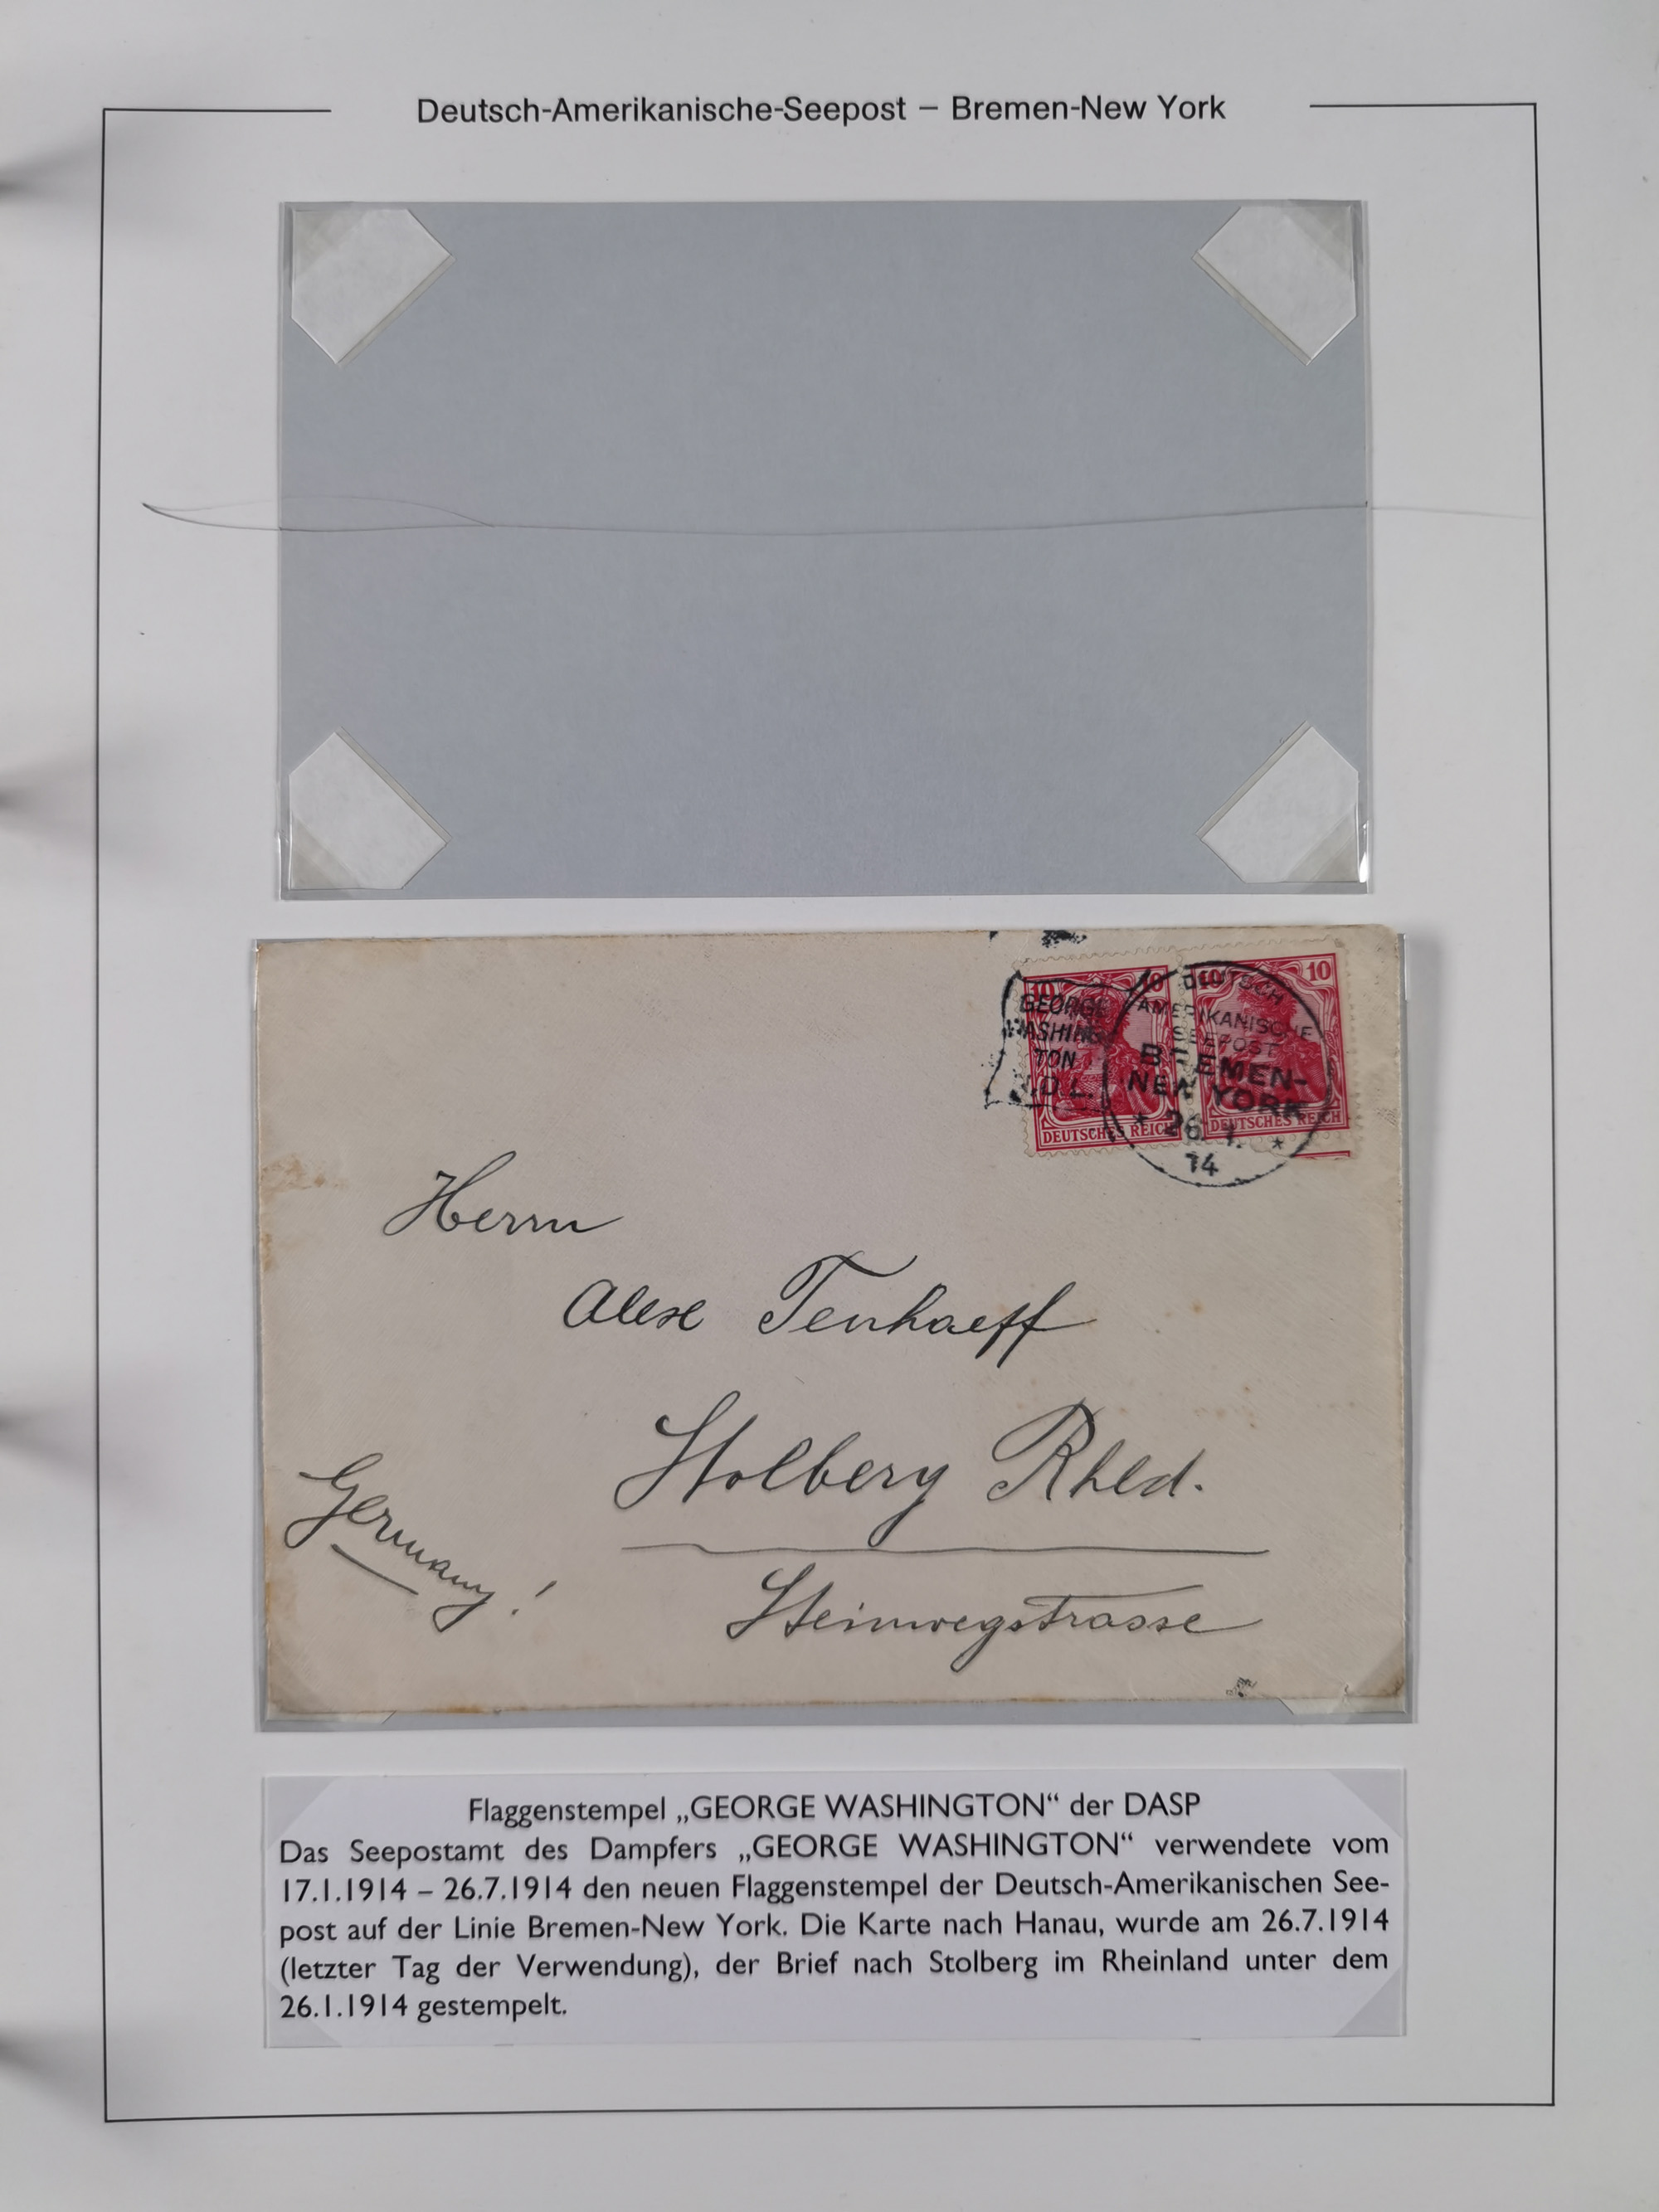 Deutsch-Amerikanische-Seepost – Bremen-New York
10 10
10 10
GEORGE
WASHING
TON
N.D.L.
DEUTSCH
AMERIKANISCHE
SEEPOST
BREMEN-
NEW YORK
* 26. 1. *
14
DEUTSCHES REICH
DEUTSCHES REICH
Herrn
Alex Tenhaeff
Stolberg Rhld.
Germany!
Steinwegstrasse
Flaggenstempel „GEORGE WASHINGTON“ der DASP
Das Seepostamt des Dampfers „GEORGE WASHINGTON“ verwendete vom
17.1.1914 – 26.7.1914 den neuen Flaggenstempel der Deutsch-Amerikanischen See-
post auf der Linie Bremen-New York. Die Karte nach Hanau, wurde am 26.7.1914
(letzter Tag der Verwendung), der Brief nach Stolberg im Rheinland unter dem
26.1.1914 gestempelt.